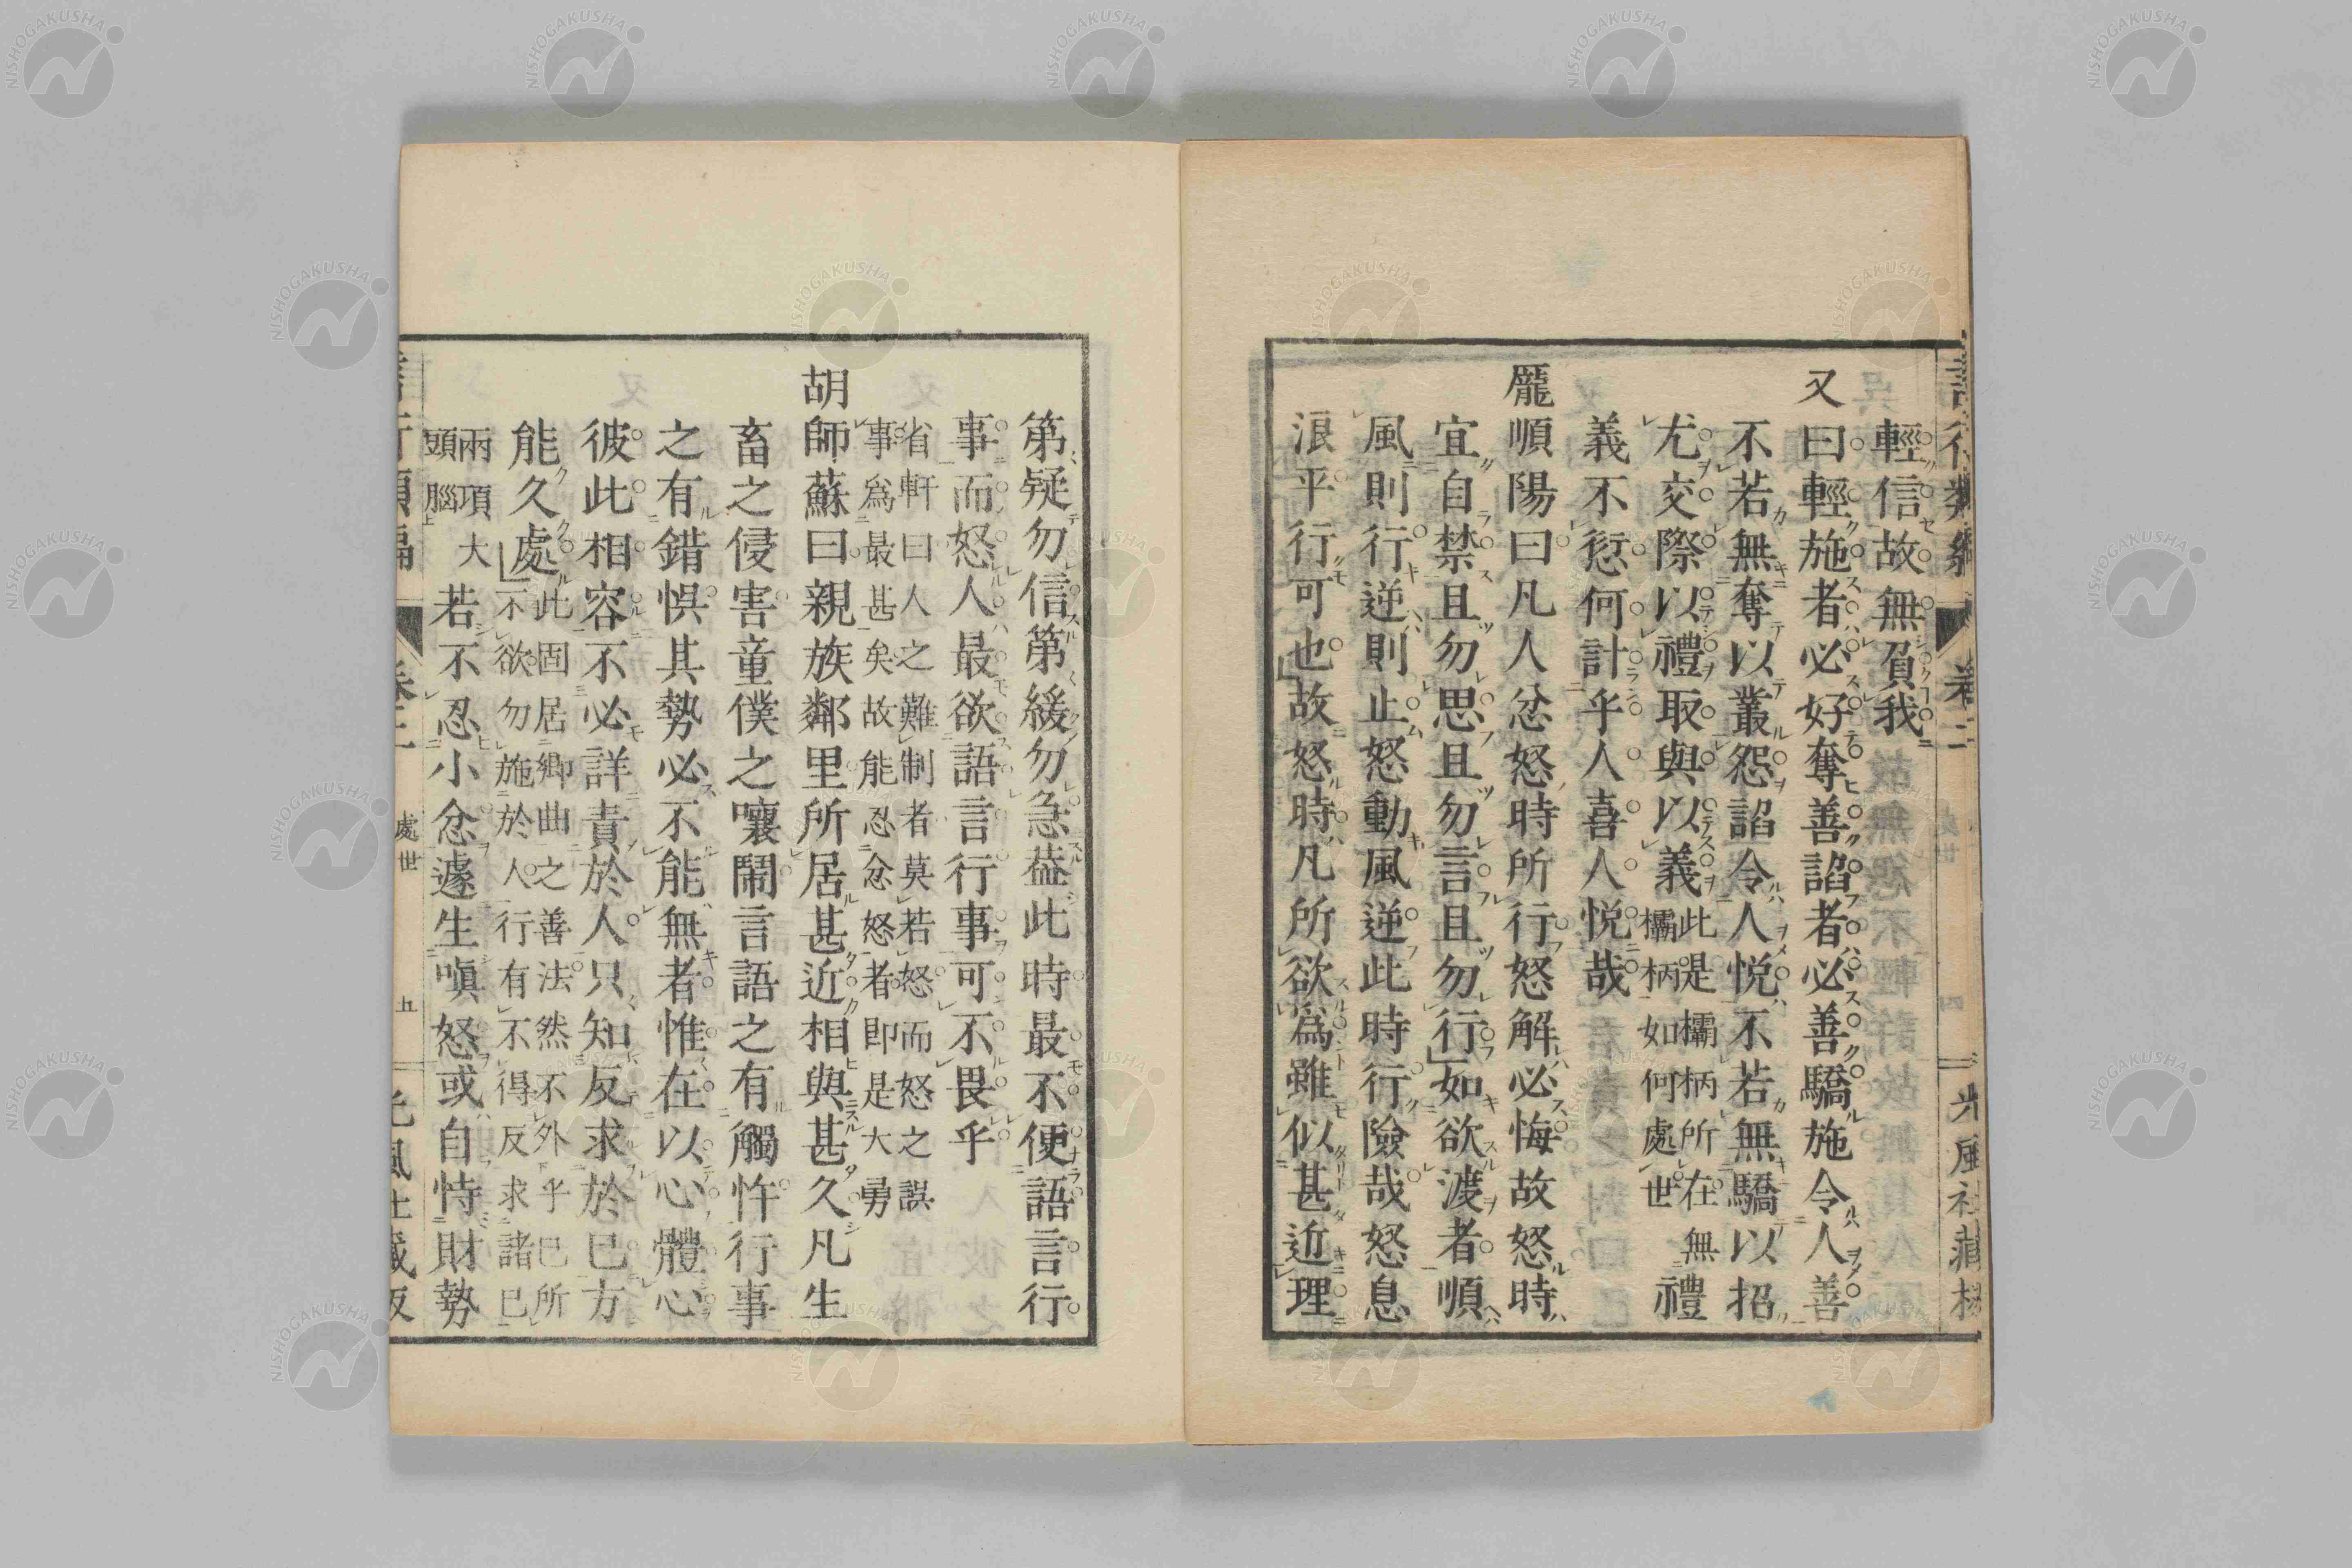 輕信故無負我
又曰輕施者必好奪善諂者必善驕施令人善
不若無奪以叢怨諂令人悦不若無驕以招
尤交際以禮取與以義此是欛柄所在無禮
欛柄如何處世
義不愆何計乎人喜人悦哉
龐順陽曰凡人忿怒時所行怒解必悔故怒時
宜自禁且勿思且勿言且勿行如欲渡者順
風則行逆則止怒動風逆此時行險哉怒息
浪平行可也故怒時凡所欲爲雖似甚近理
第疑勿信第緩勿急葢此時最不便語言行
事而怒人最欲語言行事可不畏乎
省軒曰人之難制者莫若怒而怒之誤
事爲最甚矣故能忍忿怒者即是大勇
胡師蘇曰親族鄰里所居甚近相與甚久凡生
畜之侵害童僕之嚷鬧言語之有觸忤行事
之有錯悞其勢必不能無者惟在以心體心
彼此相容不必詳責於人只知反求於己方
能久處此固居鄉曲之善法然不外乎己所
不欲勿施於人行有不得反求諸己
兩項大
頭腦
若不忍小忿遽生嗔怒或自恃財勢
處世
五
NISHOGAKUSHA